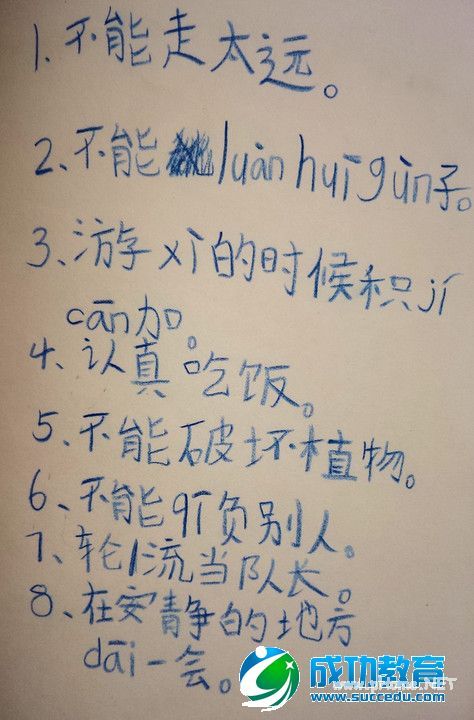 1、不能走太远。
2、不能luàn huī gùn子。
3、游xì的时候积jí
cān加。
4、认真吃饭。
5、不能破坏植物。
6、不能qī负别人。
7、轮流当队长。
8、在安静的地方
dāi一会。
成功教育
www.succedu.com